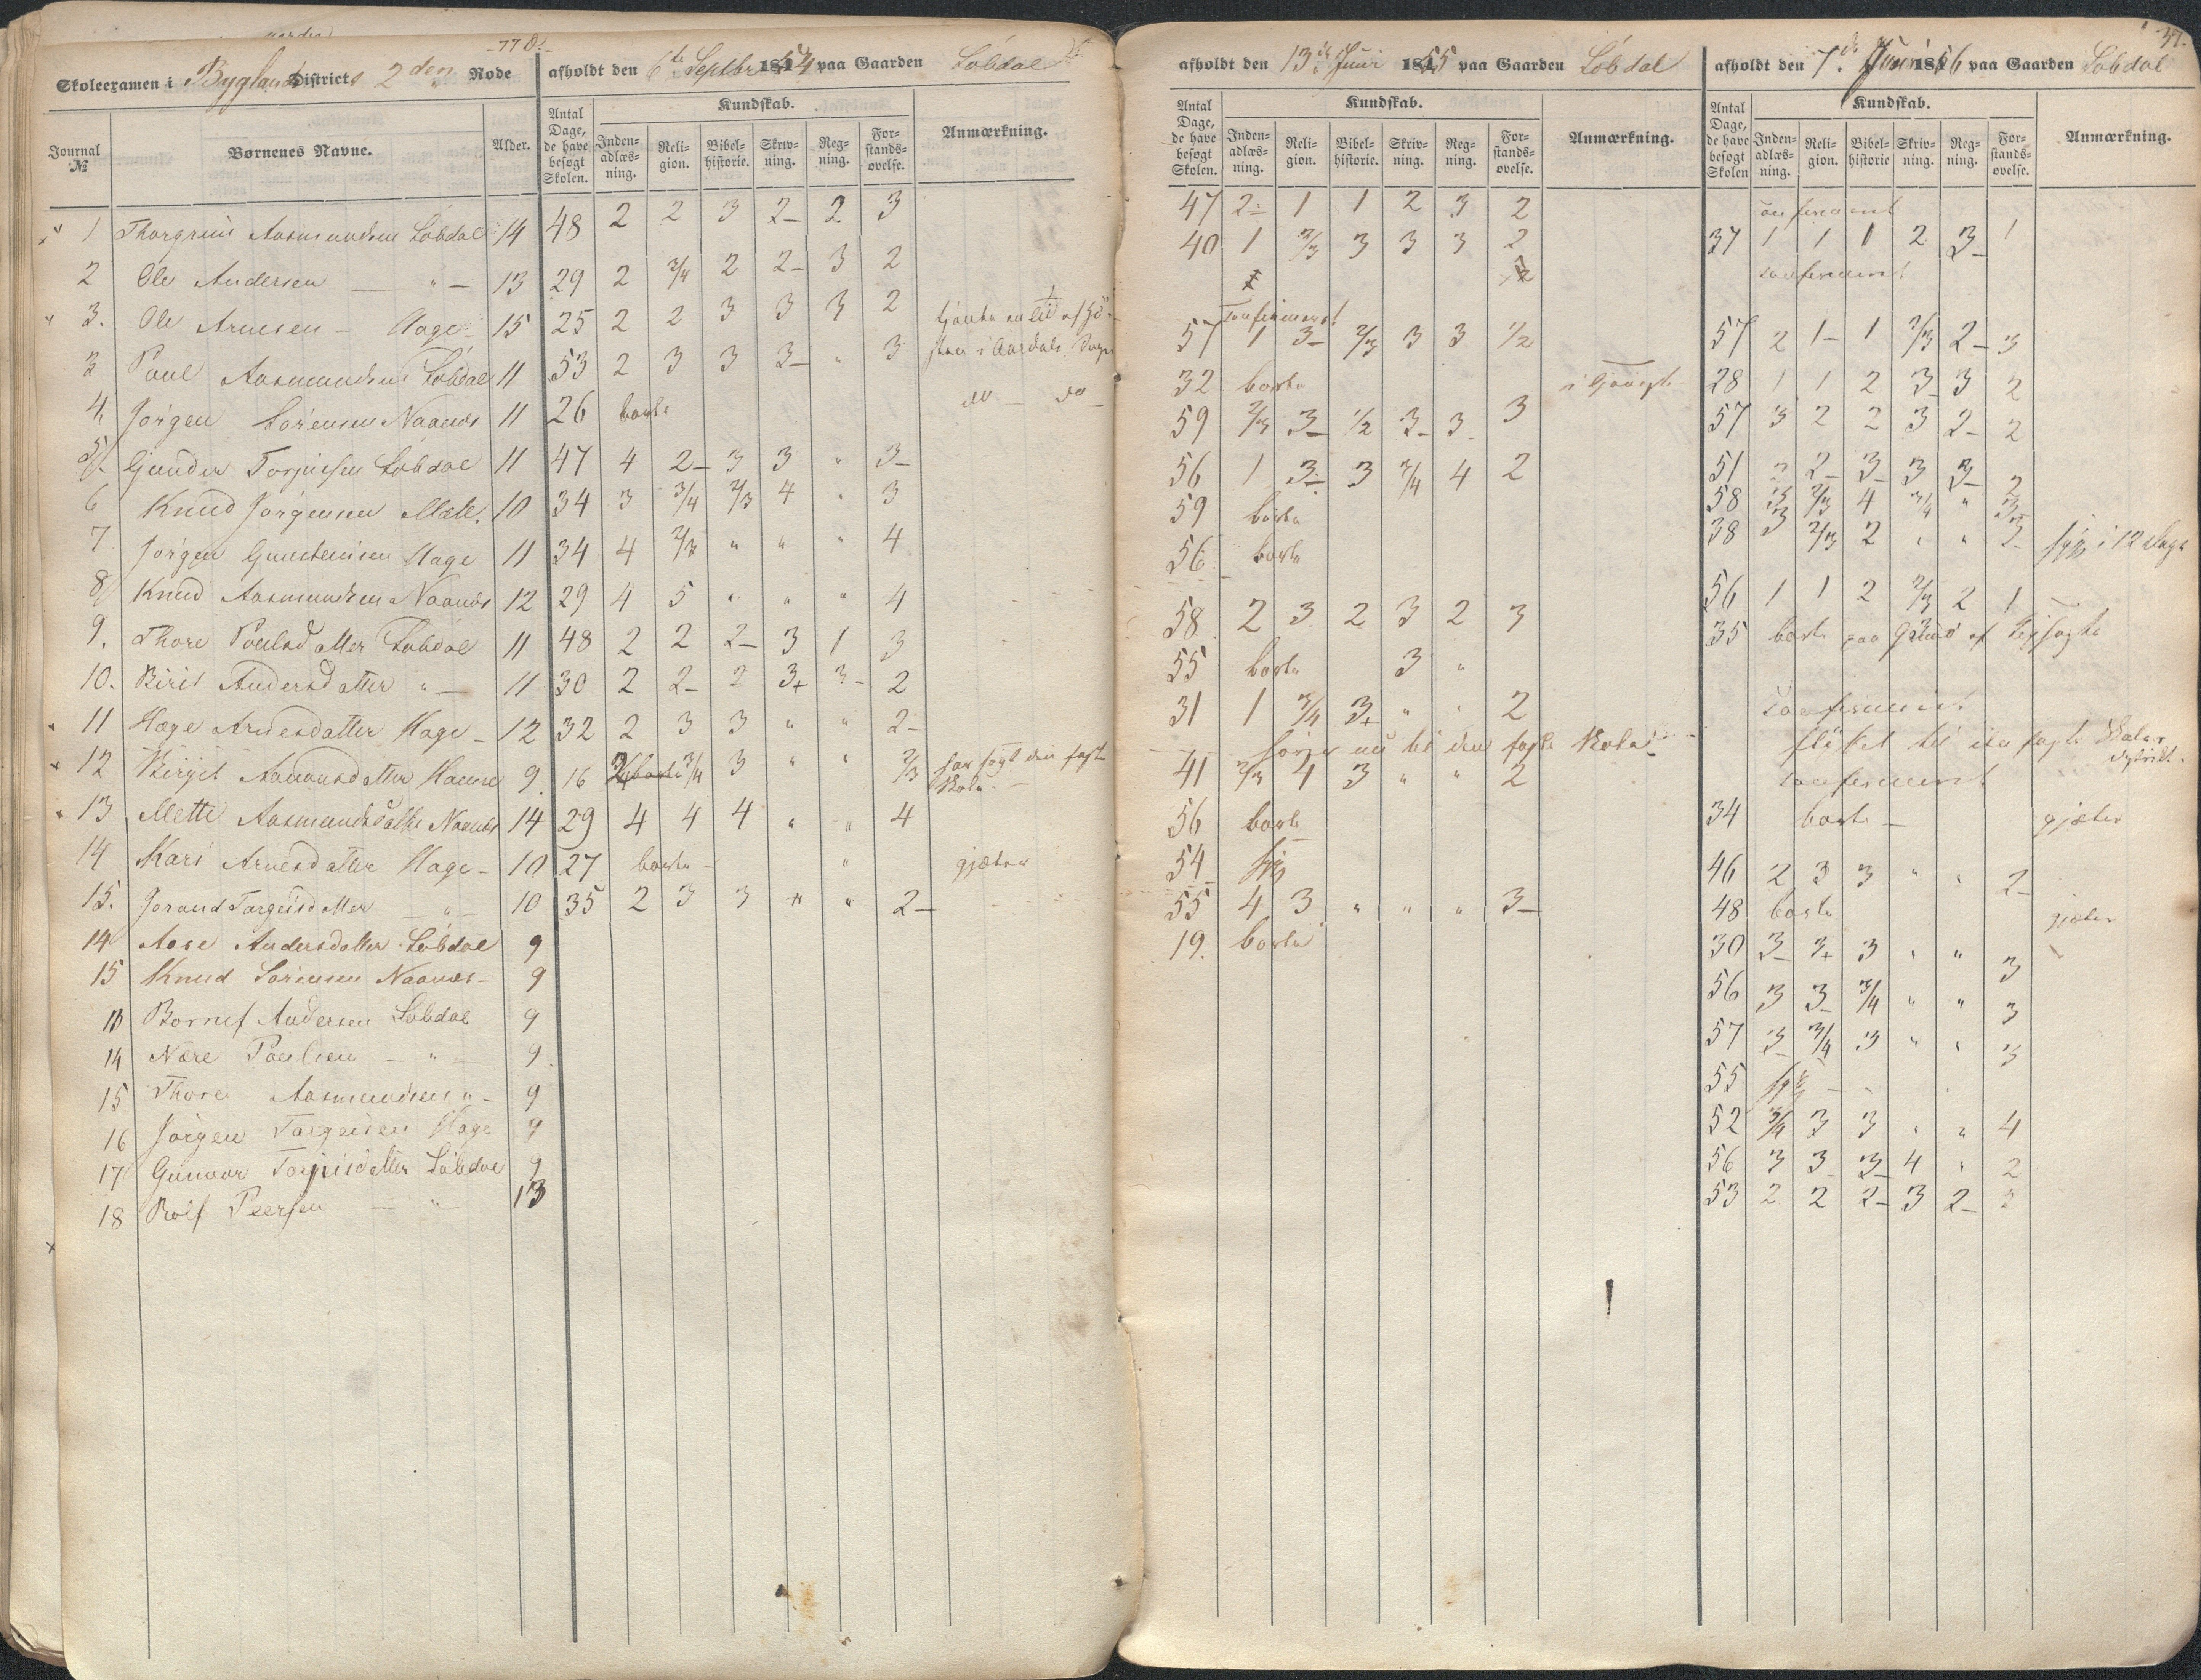 -77 d.-
Skoleexamen i Byglands Districts 2den Rode
afholdt den 6te Septbr 1854 paa Gaarden Løbdal
Journal № | Børnenes Navne. | Alder. | Antal Dage, de have besøgt Skolen. | Kundskab. | Inden-adlæs-ning. | Reli-gion. | Bibel-historie. | Skriv-ning. | Reg-ning. | For-stands-øvelse. | Anmærkning.
1 Thorgrim Aasmundsen Løbdal 14 48 2 2 3 2- 2 3
2 Ole Andersen — " — 13 29 2 3/4 2 2- 3 2
3. Ole Arnesen - Hage 15 25 2 2 3 3 3 2
3 Poul Aasmundsen Løbdal 11 53 2 3 3 3- " 3
4, Jørgen Sørensen Naanes 11 26 borte do — do —
5 Gunder Torjusen Løbdal 11 47 4 2- 3 3 " 3-
6 Knud Jørgensen 10 34 3 3/4 2/3 4 " 3
7 Jørgen Gunstensen Hage 11 34 4 " " " 4
8 Knud Aasmundsen Naanes 12 29 4 5 " " " 4
9. Thore Poulsdatter Løbdal 11 48 2 2 2- 3 1 3
10. Birit Andersdatter " — 11 30 2 2- 2 3+ 3- 2
11 Hæge Arnesdatter Hage - 12 32 2 3 3 " " 2-
12 Birgit 9. 16 borte 3/4 3 " " 2/3 har søgt den faste Skole.-
13 Mette Aasmundsdatter Naanes 14 29 4 4 4 " " 4
14 Kari Arnesdatter Hage - 10 27 borte - " gjæter
15. Jorand Targusdatter — " — 10 35 2 3 3 " " 2-
14 Aase Andersdatter Løbdal 9
15 Knud Sørensen Naanes - 9
Andersen Løbdal 9
14 Nære Poulsen — " — 9
15 Thore Aasmundsen " - 9
16 Jørgen Hage 9
17 Gunvor Torjusdatter Løbdal 9
18 Rolf Peersen — " — 13
afholdt den 13de Juni 1855 paa Gaarden Løbdal
Antal Dage, de have besøgt Skolen. | Kundskab. | Inden-adlæs-ning. | Reli-gion. | Bibel-historie. | Skriv-ning. | Reg-ning. | For-stands-øvelse. | Anmærkning.
47 2- 1 1 2 3 2
40 1 2/3 3 3 3 2
confirmeret
57 1 3- 2/3 3 3 1/2
32 borte
59 2/3 3- 1/2 3- 3- 3
56 1 3- 3 3/4 4 2
59 borte
56 borte
58 2 3 2 3 2 3
55 borte 3 "
31 1 3/4 3+ " " 2
søger nu til den faste Skole
41 2/3 4 3 " " 2
56 borte
54 syg
55 4 3 " " " 3-
19. borte
37.
afholdt den 7de Juni 1856 paa Gaarden Løbdal
Antal Dage, de have besøgt Skolen | Kundskab. | Inden-adlæs-ning. | Reli-gion. | Bibel-historie | Skriv-ning. | Reg-ning. | For-stands-øvelse. | Anmærkning.
confirmeret
37 1 1 1 2 3- 1
confirmeret
57 2 1- 1 2/3 2- 3
28 1 1 2 3- 3 2
57 3 2 2 3 2- 2
51 2 2- 3- 3 3- 2
58 3 2/3 4 3/4 " 3
38 3 2/3 2 " " 3- syg i 12 Dage
56 1 1 2 2/3 2 1
35 borte paa Grund af
confirmeret
flyttet til den faste Skoles distrikt.
confirmeret
34 borte — gjæter
46 2 3 3 " " 2-
48 borte gjæter
30 3- 3+ 3 " " 3
56 3 3- 3/4 " " 3
57 3 3/4 3 " " 3
55 syg - -
52 3/4 3 3 " " 4
56 3 3- 3- 4 " 2
53 2 2 2- 3 2- 3